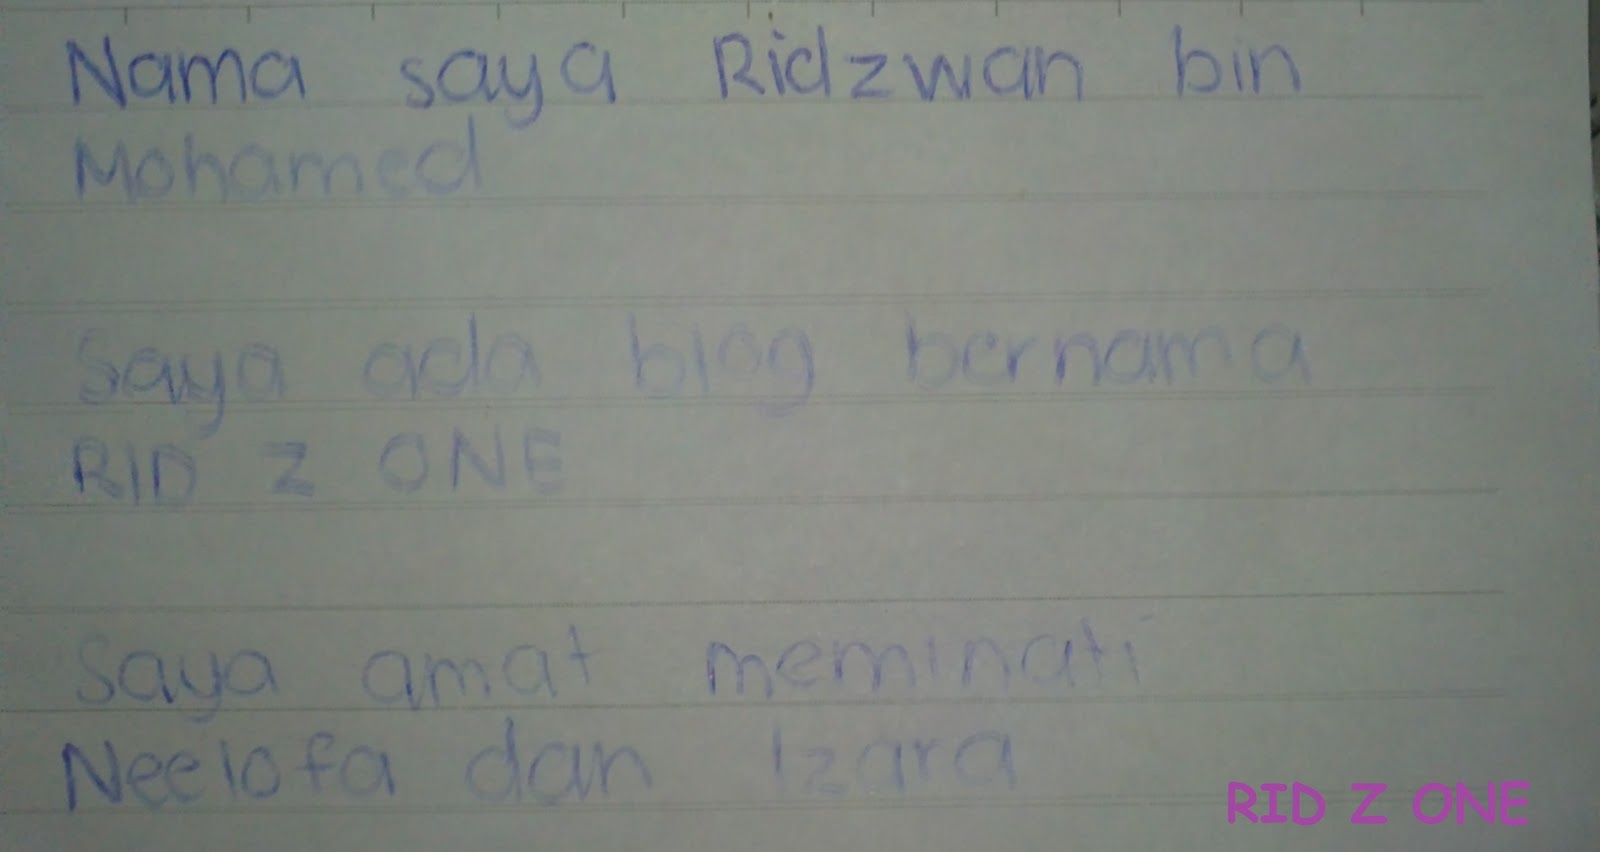 Nama saya Ridzwan bin
Mohamed
Saya ada blog bernama
RID Z ONE
Saya amat meminati
Neelofa dan Izara
RID Z ONE